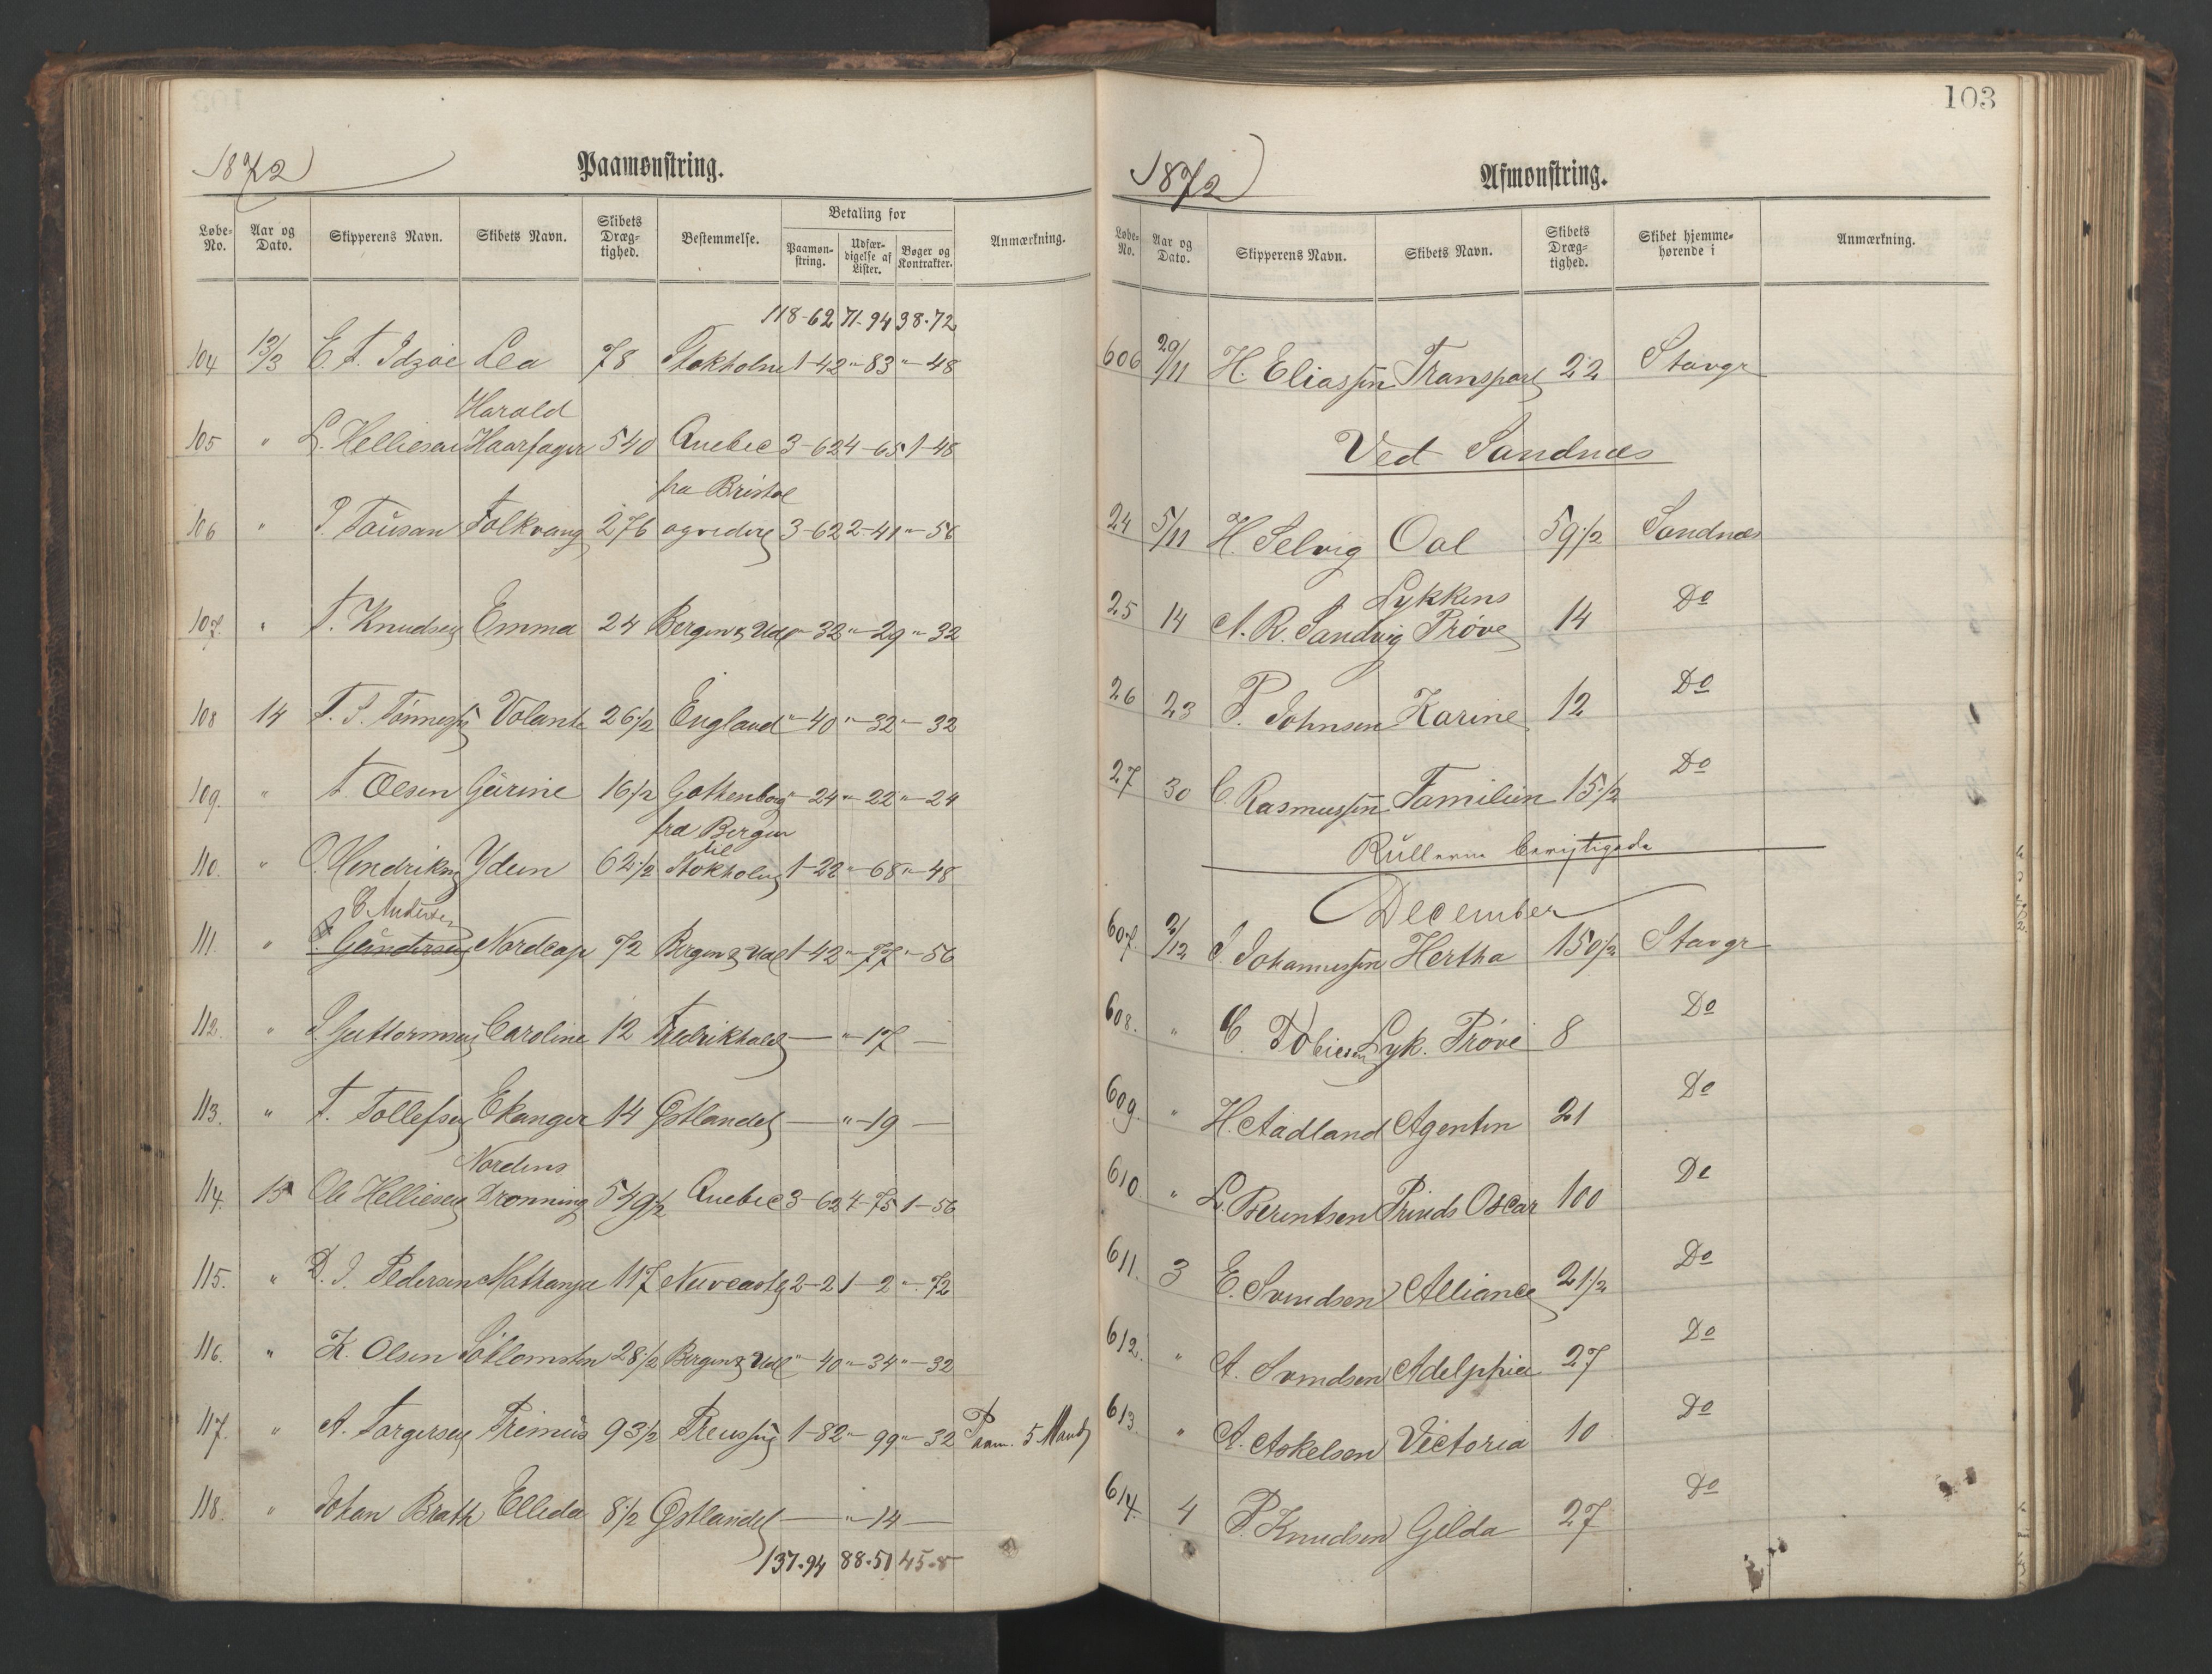 1872
Paamønstring.
Løbe-No. Aar og Dato. Skipperens Navn. Skibets Navn. Skibets Dræg-tighed. Bestemmelse. Betaling for Paamøn-string. Udfær-digelse af Lister. Bøger og Kontrakter. Anmærkning.
118-62 71-94 38-72
104 13/3 E. T. Idzøe Lea 78 Stokholm 1-42 "-83 "-48
Harald
105 " L. Helliesen Haarfager 540 Quebec 3-62 4-65 1-48
fra Bristol
106 " P. Tausan Folkvang 276 og videre 3-62 2-41 "-56
107. " T. Knudsen Emma 24 Bergen & Udl "-32 "-29 "-32
108 14 T. S. Tönnessen Volante 26 1/2 England "-40 "-32 "-32
109. " T. Olsen Gurine 16 1/2 Gothenborg "-24 "-22 "-24
fra Bergen
til
110. " O. Hendriksen Ydun 62 1/2 Stokholm 1-22 "-68 "-48
C. Andersen
111. " Gundersen Nordcap 72 Bergen & Udl 1-42 "-77 "-56
112. " Guttormsen Caroline 12 Fredrikhald — "-17 —
113. " T. Tollefsen Ekanger 14 Østlandet — "-19 —
Nordens
114. 15 Ole Helliesen Dronning 549 1/2 Quebec 3-62 4-75 1-56
115. " D. J. Pedersen Mathanja 117 Newcastle 2-2 1-2 "-72
116. " K. Olsen Söblomsten 28 1/2 Bergen & Udl "-40 "-34 "-32
117. " A. Torgersen Primus 93 1/2 Preussen 1-82 "-99 "-32 Paam. 5 Mand
118. " Johan Brath Elleda 8 1/2 Østlandet — "-14 —
137-94 88-51 45-8
103
1872
Afmønstring.
Løbe-No. Aar og Dato. Skipperens Navn. Skibets Navn. Skibets Dræg-tighed. Skibet hjemme-hørende i Anmærkning.
606 29/11 H. Eliassen Transport 22 Stavgr
Ved Sandnæs
24 5/11 H. Selvig Oal 59 1/2 Sandnæs
Lykkens
25 14 A. R. Sandvig Prøve 14 Do
26 23 P. Johnsen Karine 12 Do
27 30 C. Rasmussen Familien 15 1/2 Do
Rullerne berigtigede
December
607. 2/12 Johannessen Hertha 150 1/2 Stavgr
608. " C. Tobiesen Lyk. Prøve 8 Do
609. " H. Aadland Agenten 21 Do
610. " L. Berentsen Prinds Oscar 100 Do
611. 3 E. Svendsen Alliance 21 1/2 Do
612. " A. Svendsen Adelphia 27 Do
613. " A. Askelsen Victoria 10 Do
614. 4 P. Knudsen Gilda 27 Do